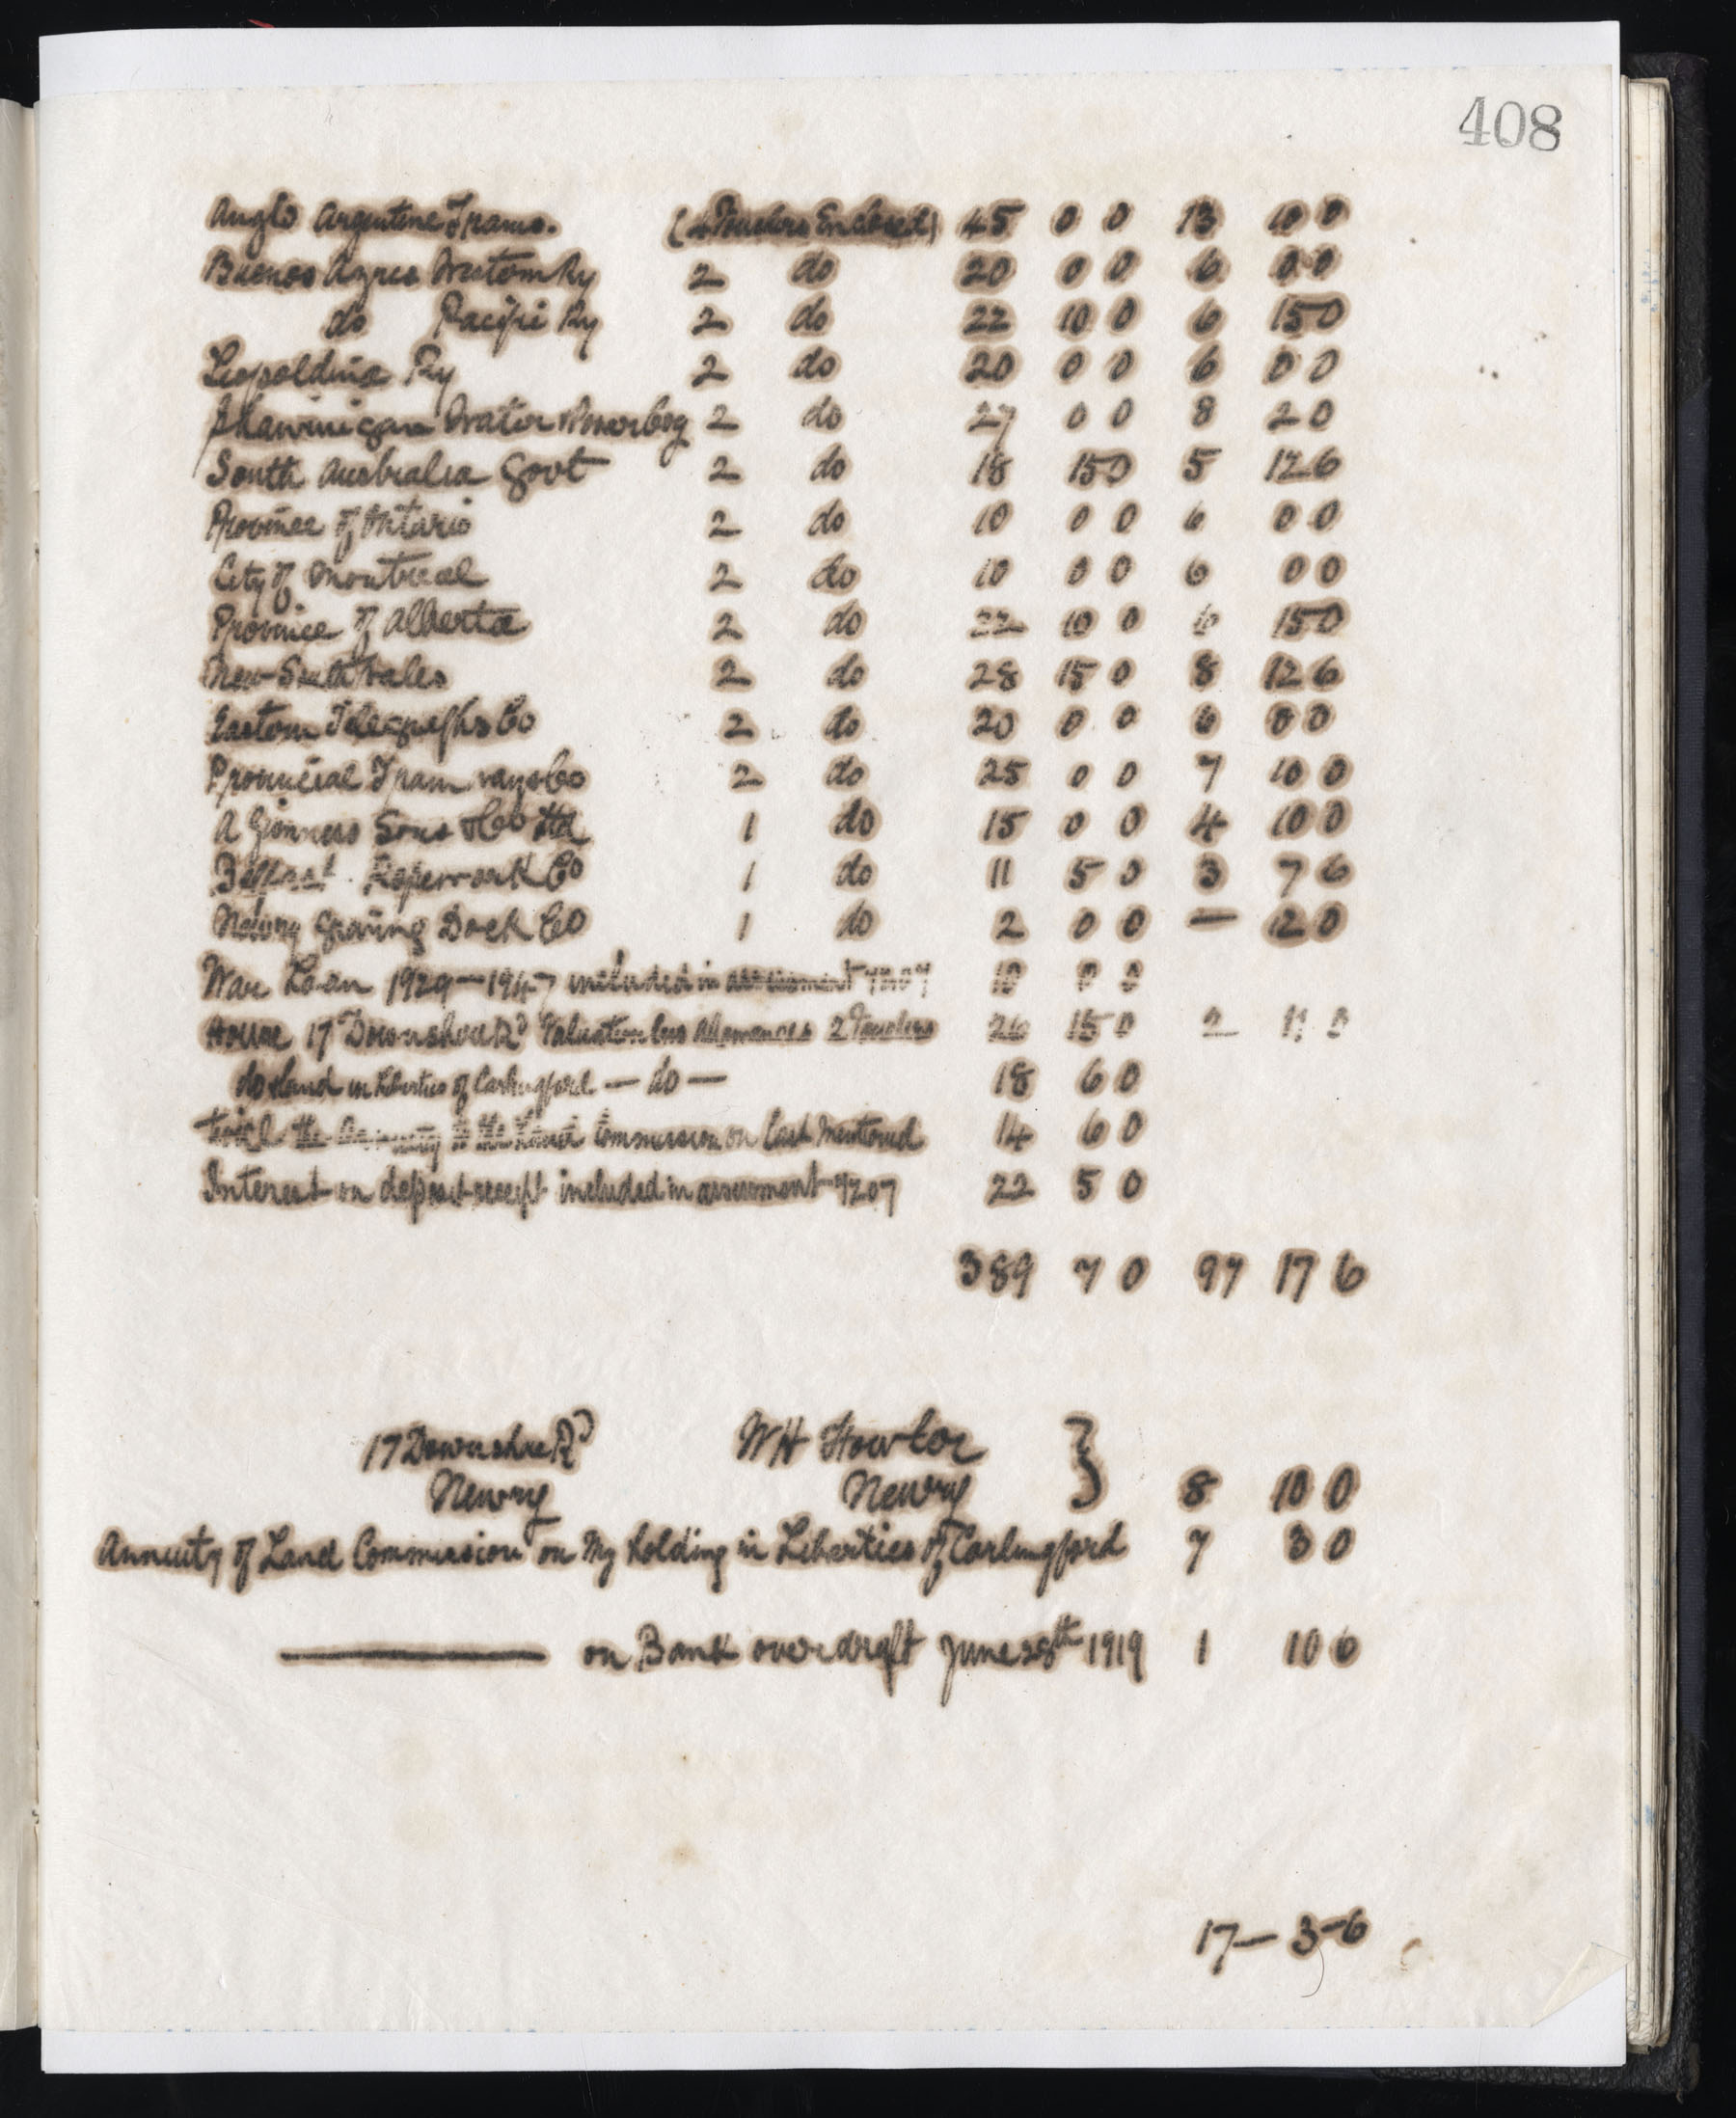 408
Anglo Argentine Trams. (4 Vouchers Enclosed) 45 0 0 13 10 0
Buenos Ayres Western Ry 2 do 20 0 0 6 0 0
do Pacific Ry 2 do 22 10 0 6 15 0
Leopoldina Ry 2 do 20 0 0 6 0 0
Shawinigan Water & Power Coy 2 do 27 0 0 8 2 0
South Australia Govt 2 do 18 15 0 5 12 6
Province of Ontario 2 do 10 0 0 6 0 0
City of Montreal 2 do 10 0 0 6 0 0
Province of Alberta 2 do 22 10 0 6 15 0
New South Wales 2 do 28 15 0 8 12 6
Eastern Telegraphs Co 2 do 20 0 0 6 0 0
Provincial Tramways Co 2 do 25 0 0 7 10 0
A Guinness Sons & Co Ltd 1 do 15 0 0 4 10 0
Belfast Ropework Co 1 do 11 5 0 3 7 6
Newry Graving Dock Co 1 do 2 0 0 — 12 0
War Loan 1929—1947 included in assessment 10 0 0
House 17 Downshire Rd Valuation less allowances 2 Vouchers 26 15 0 2 11 0
do Land in Liberties of Carlingford — do — 18 6 0
the Annuity to the Land Commission on last mentioned 14 6 0
Interest on deposit receipt included in assessment 9207 22 5 0
389 7 0 97 17 6
17 Downshire Rd WH }
Newry Newry 8 10 0
Annuity of Land Commission on My holding in Liberties of Carlingford 7 3 0
——— on Bank overdraft June 28th 1919 1 10 6
17—3-6